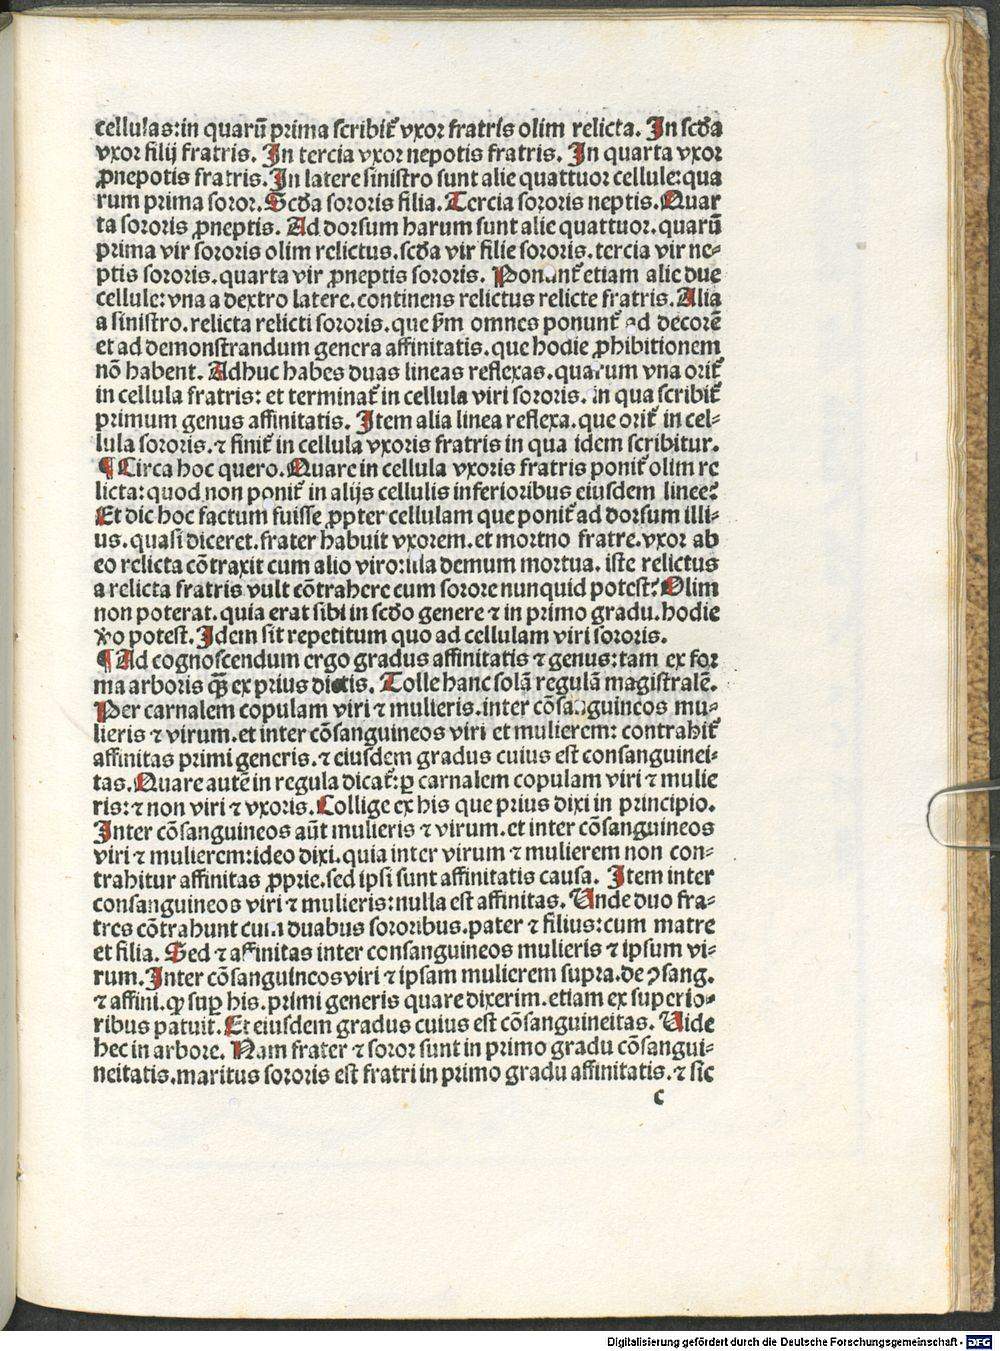 cellulas:in quarū prima scribit᷑ vxor fratris olim relicta. In scd̄a
vxor filij fratris. In tercia vxor nepotis fratris. In quarta vxor
ꝓnepotis fratris. In latere sinistro sunt alie quattuor cellule:qua
rum prima soror. Scd̄a sororis filia. Tercia sororis neptis. Quar
ta sororis ꝓneptis. Ad dorsum harum sunt alie quattuor. quarū
prima vir sororis olim relictus. scd̄a vir filie sororis. tercia vir ne⸗
ptis sororis. quarta vir ꝓneptis sororis. Ponunt᷑ etiam alie due
cellule: vna a dextro latere. continens relictus relicte fratris. Alia
a sinistro. relicta relicti sororis. que ẜm omnes ponunt᷑ ad decorē
et ad demonstrandum genera affinitatis. que hodie ꝓhibitionem
nō habent. Adhuc habes duas lineas reflexas. quarum vna orit᷑
in cellula fratris: et terminat᷑ in cellula viri sororis. in qua scribit᷑
primum genus affinitatis. Item alia linea reflexa. que orit᷑ in cel⸗
lula sororis. ⁊ finit᷑ in cellula vxoris fratris in qua idem scribitur.
¶ Circa hoc quero. Quare in cellula vxoris fratris ponit᷑ olim re
licta: quod non ponit᷑ in alijs cellulis inferioribus eiusdem linee?
Et dic hoc factum fuisse ꝓpter cellulam que ponit᷑ ad dorsum illi⸗
us. quasi diceret. frater habuit vxorem. et mortno fratre. vxor ab
eo relicta cōtraxit cum alio viro: illa demum mortua. iste relictus
a relicta fratris vult cōtrahere cum sorore nunquid potest? Olim
non poterat. quia erat sibi in scd̄o genere ⁊ in primo gradu. hodie
v̾o potest. Idem sit repetitum quo ad cellulam viri sororis.
¶ Ad cognoscendum ergo gradus affinitatis ⁊ genus: tam ex for
ma arboris qȝ̄ ex prius dictis. Tolle hanc solā regulā magistralē.
Per carnalem copulam viri ⁊ mulieris. inter cōsanguineos mu⸗
lieris ⁊ virum. et inter cōsanguineos viri et mulierem: contrahit᷑
affinitas primi generis. ⁊ eiusdem gradus cuius est consanguinei⸗
tas. Quare autē in regula dicat᷑: ꝑ carnalem copulam viri ⁊ mulie
ris: ⁊ non viri ⁊ vxoris. Collige ex his que prius dixi in principio.
Inter cōsanguineos aūt mulieris ⁊ virum. et inter cōsanguineos
viri ⁊ mulierem: ideo dixi. quia inter virum ⁊ mulierem non con⸗
trahitur affinitas ꝓprie. sed ipsi sunt affinitatis causa. Item inter
consanguineos viri ⁊ mulieris: nulla est affinitas. Unde duo fra⸗
tres cōtrahunt cum duabus sororibus. pater ⁊ filius: cum matre
et filia. Sed ⁊ affinitas inter consanguineos mulieris ⁊ ipsum vi⸗
rum. Inter cōsanguineos viri ⁊ ipsam mulierem supra. de ꝯsang.
⁊ affini. ꝙ suꝑ his. primi generis quare dixerim. etiam ex superio⸗
ribus patuit. Et eiusdem gradus cuius est cōsanguineitas. Uide
hec in arbore. Nam frater ⁊ soror sunt in primo gradu cōsangui⸗
neitatis. maritus sororis est fratri in primo gradu affinitatis. ⁊ sic
c
Digitalisierung gefördert durch die Deutsche Forschungsgemeinschaft - DFG